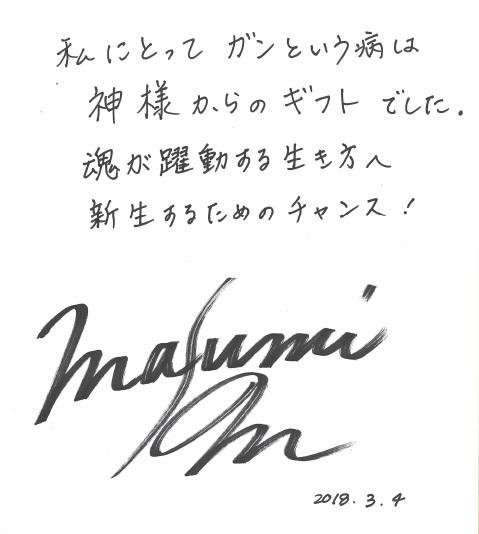 私にとって ガンという病は
神様からのギフトでした.
魂が躍動する生き方へ
新生するためのチャンス!
Masumi
2018.3.4